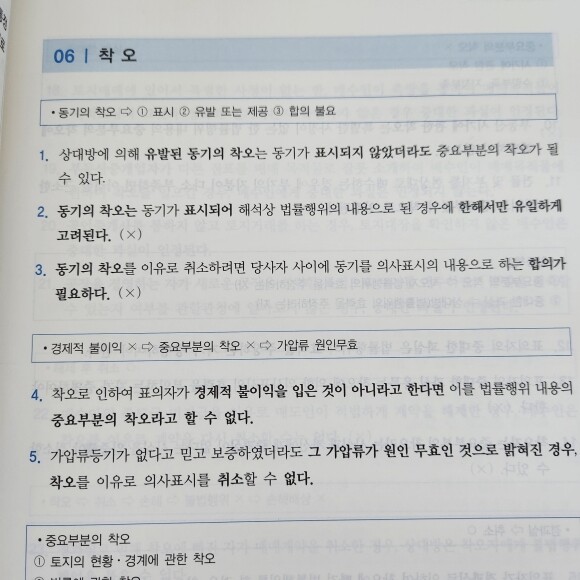 06 | 착 오
• 동기의 착오 ⇨ ① 표시 ② 유발 또는 제공 ③ 합의 불요
1. 상대방에 의해 유발된 동기의 착오는 동기가 표시되지 않았더라도 중요부분의 착오가 될
수 있다.
2. 동기의 착오는 동기가 표시되어 해석상 법률행위의 내용으로 된 경우에 한해서만 유일하게
고려된다. (×)
3. 동기의 착오를 이유로 취소하려면 당사자 사이에 동기를 의사표시의 내용으로 하는 합의가
필요하다. (×)
• 경제적 불이익 × ⇨ 중요부분의 착오 × ⇨ 가압류 원인무효
4. 착오로 인하여 표의자가 경제적 불이익을 입은 것이 아니라고 한다면 이를 법률행위 내용의
중요부분의 착오라고 할 수 없다.
5. 가압류등기가 없다고 믿고 보증하였더라도 그 가압류가 원인 무효인 것으로 밝혀진 경우,
착오를 이유로 의사표시를 취소할 수 없다.
• 중요부분의 착오
① 토지의 현황·경계에 관한 착오